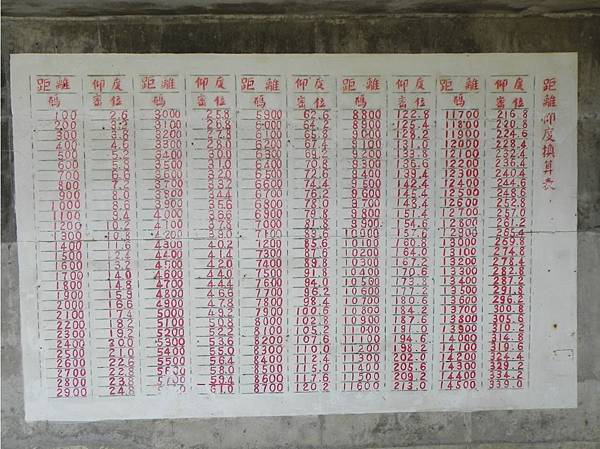 距離仰度換算表
距離 仰度 距離 仰度 距離 仰度 距離 仰度 距離 仰度
碼 密位 碼 密位 碼 密位 碼 密位 碼 密位
100 2.6 3000 25.8 5900 62.6 8800 122.8 11700 216.8
200 3.2 3100 26.8 6000 64.0 8900 11800 220.8
300 3.8 3200 27.8 6100 65.8 9000 128.2 11900 224.6
400 4.6 3300 28.0 6200 67.4 9100 131.0 12000 228.4
500 3400 30.0 6300 69.2 9200 133.8 12100 232.4
600 3500 31.0 6400 9300 136.6 12200 236.4
700 6.6 3600 32.0 6500 72.6 9400 139.4 12300 240.4
800 7.2 3700 33.2 6600 74.4 9500 142.4 12400 244.6
900 8.0 3800 34.4 6700 76.2 9600 145.4 12500 248.6
1000 8.6 3900 6800 78.0 9700 148.4 12600 252.8
1100 9.4 4000 36.6 6900 79.8 9800 151.4 12700 257.0
1200 10.2 4100 37.8 7000 81.8 9900 154.6 12800 281.2
1300 10.8 4200 39.0 7100 83.6 10000 12900 285.4
1400 11.6 4300 40.2 7200 85.6 10100 160.8 13000 269.8
1500 12.4 4400 41.4 7300 87.6 10200 164.0 13100 274.8
1600 4500 42.6 7400 89.8 10300 167.2 13200 278.4
1700 14.0 4600 44.0 7500 91.8 10400 170.6 13300 282.8
1800 14.8 4700 44.4 7600 94.0 10500 173.8 13400 287.2
1900 15.8 4800 46.6 7700 96.2 10600 13500 291.8
2000 16.6 4900 47.8 7800 98.4 10700 180.6 13600 296.2
2100 17.4 5000 49.2 7900 100.6 10800 184.2 13700 300.8
2200 18.2 5100 50.8 8000 102.8 10900 187.6 13800 305.6
2300 5200 52.2 8100 105.2 11000 191.0 13900 310.2
2400 20.0 5300 53.6 8200 107.6 11100 194.6 14000 314.8
2500 21.0 5400 55.0 8300 110.0 11200 198.2 14100 319.6
2600 22.0 5500 56.4 8400 112.4 11300 202.0 14200 324.4
2700 22.8 5600 58.0 8500 115.0 11400 205.6 14300 329.2
2800 23.8 5700 59.4 8600 117.6 11500 209.2 14400 334.2
2900 24.8 61.0 8700 120.2 11600 213.0 14500 339.0